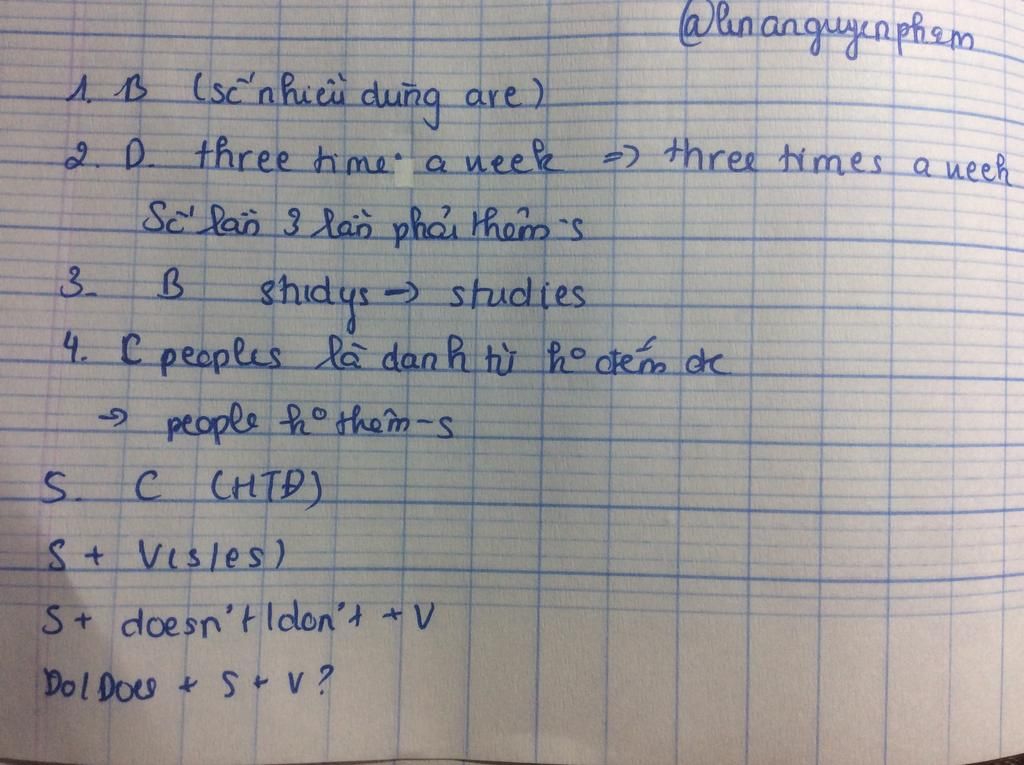 @linanguyenpham
1. B (số nhiều dùng are)
2. D. three time a week => three times a week
Số lần 3 lần phải thêm -s
3. B studys -> studies
4. C peoples là danh từ ko đếm đc
-> people ko thêm -s
5. C (HTĐ)
S + V(s/es)
S + doesn't + / don't + V
Do / Does + S + V?